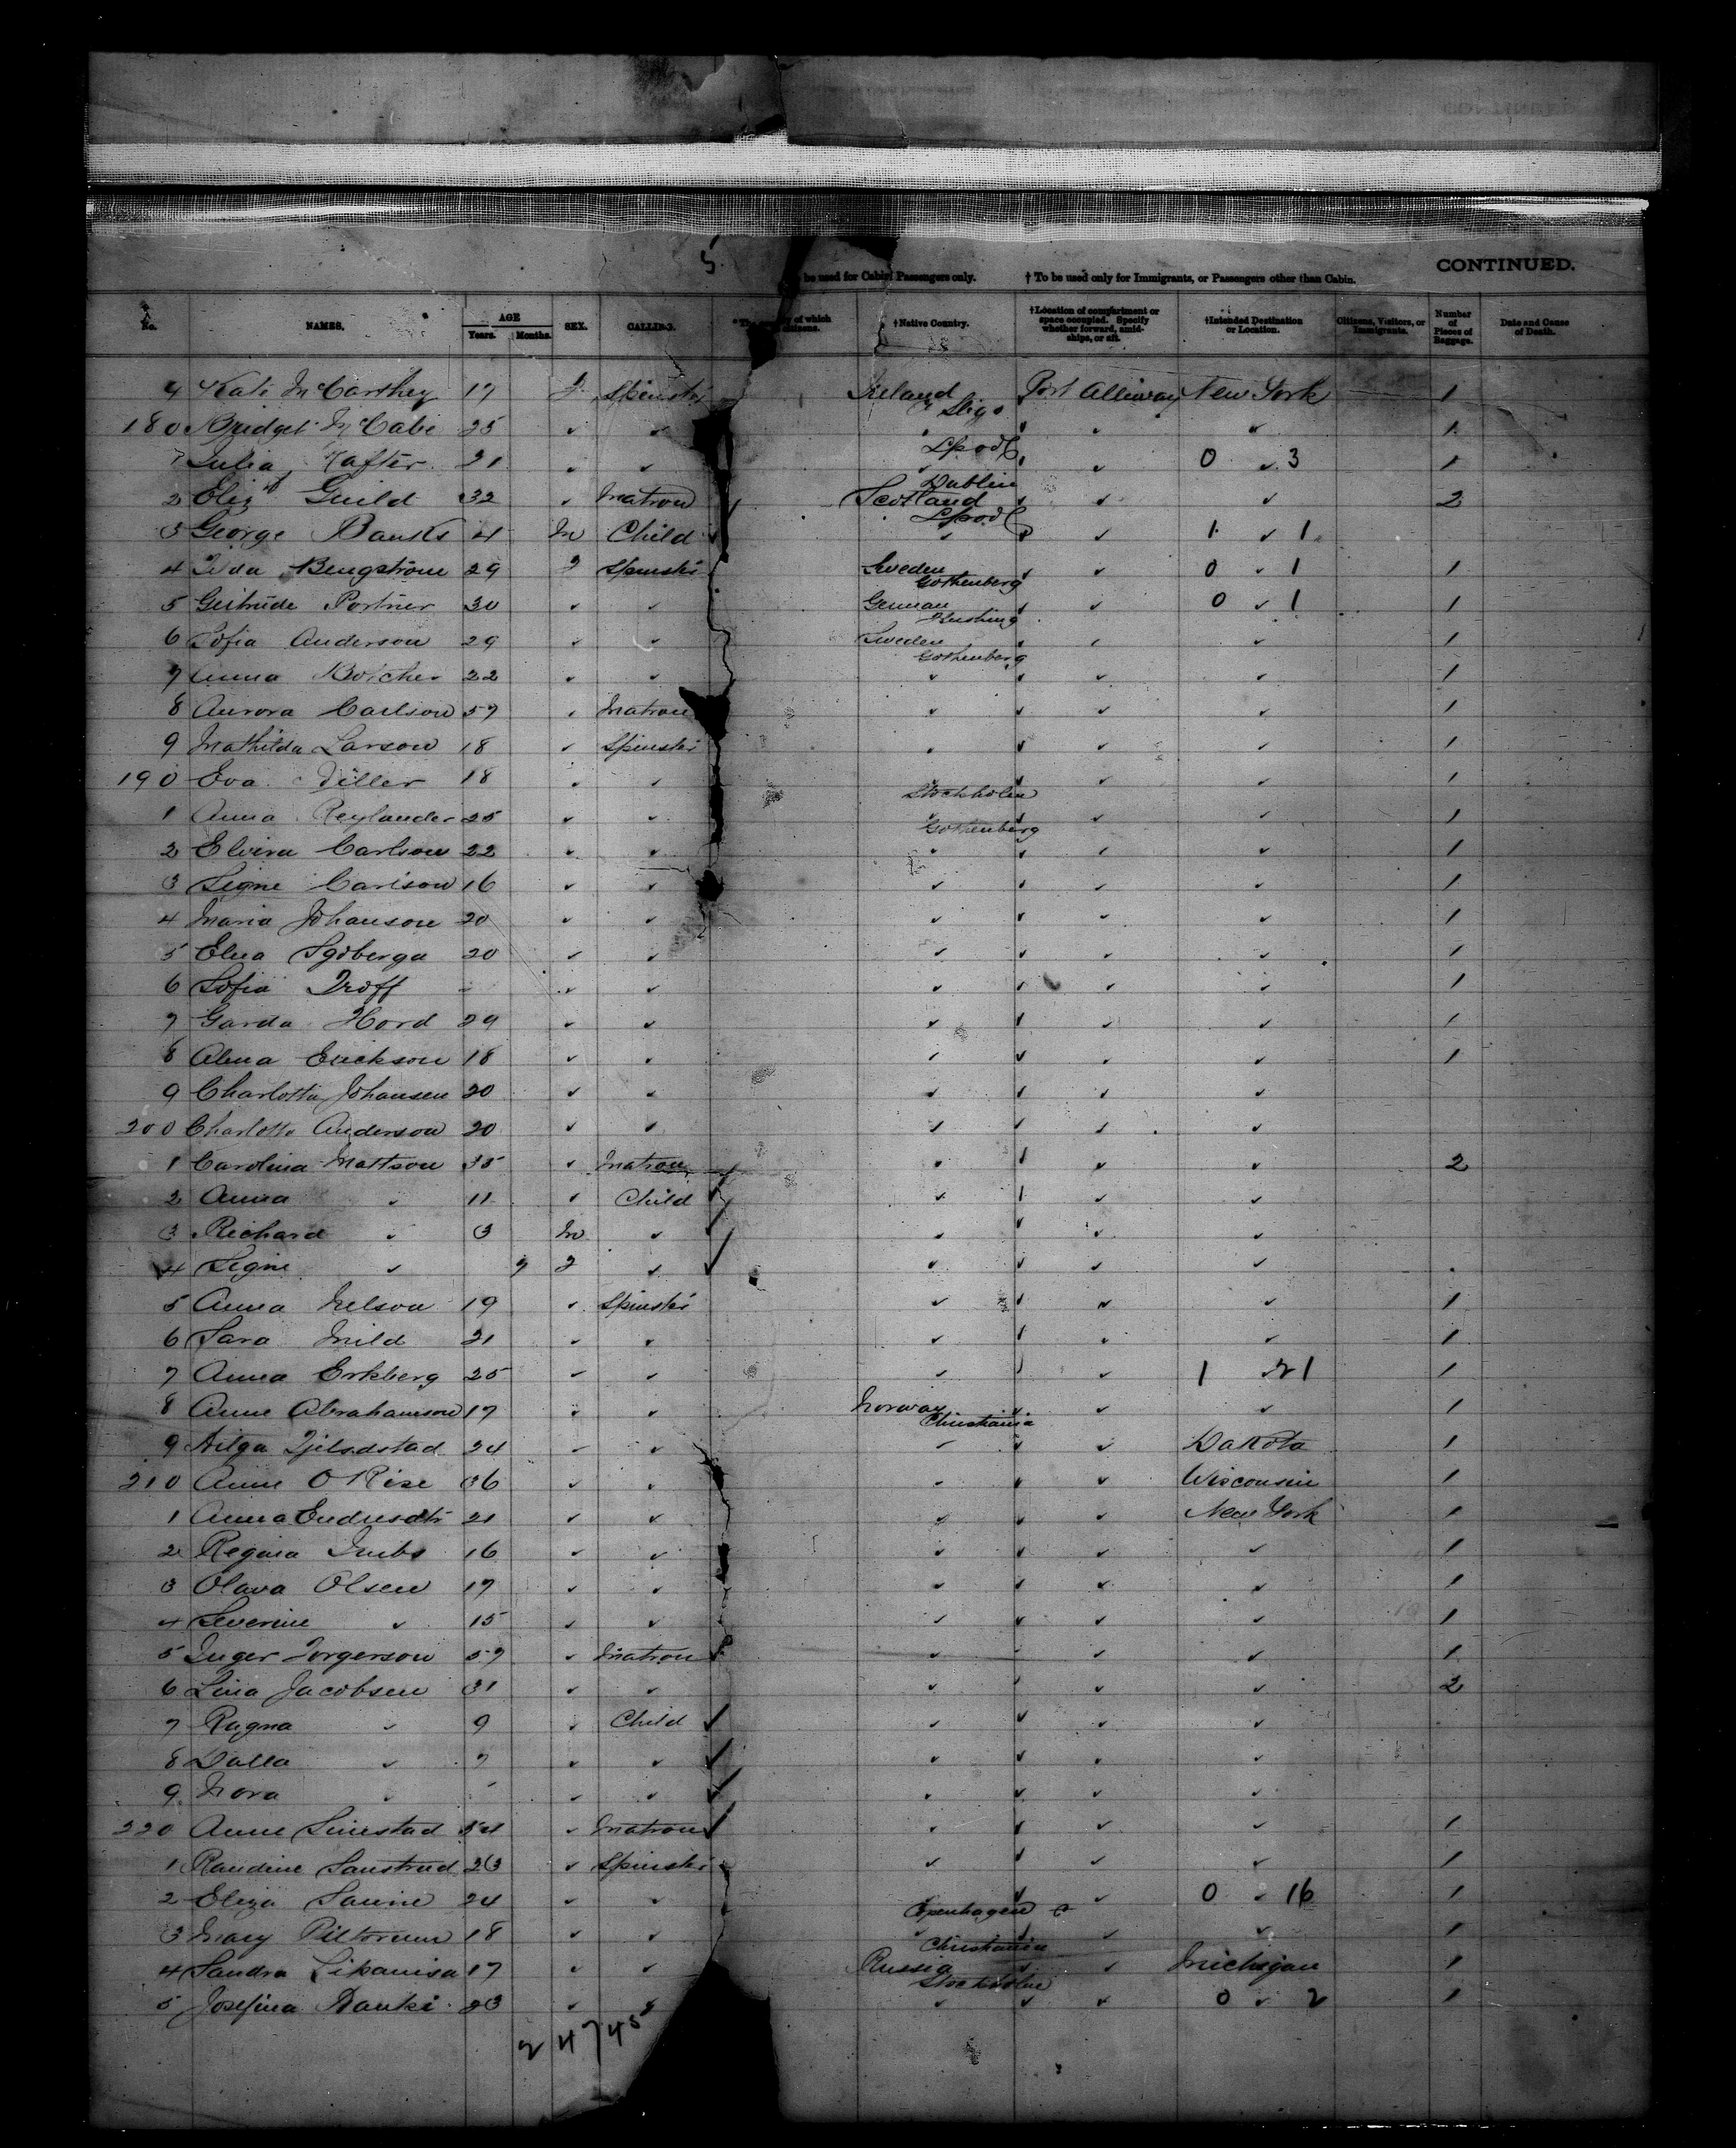 5.
be used for Cabin Passengers only. † To be used only for Immigrants, or Passengers other than Cabin. CONTINUED.
No. NAMES. AGE Years. Months. SEX. CALLING. of which citizens. †Native Country. †Location of compartment or space occupied. Specify whether forward, amidships, or aft. †Intended Destination or Location. Citizens, Visitors, or Immigrants. Number of Pieces of Baggage. Date and Cause of Death.
9 Kate McCarthey 17 f Spinster Ireland Port Alleway New York 1
Sligo
180 Bridget McCabe 25 ✓ ✓ ✓ ✓ 1
Lpool
Julia Rafter 21 ✓ ✓ ✓ ✓ 0 ✓ 3 1
Dublin
2 Eliz Guild 32 ✓ Matron Scotland ✓ ✓ ✓ 2
Lpool
3 George Banks 4 m Child ✓ ✓ 1 ✓ 1
4 Bengström 29 f Spinster Sweden ✓ ✓ 0 ✓ 1 1
Gothenberg
5 Gertrude Portner 30 ✓ ✓ German ✓ ✓ 0 ✓ 1 1
Flushing
6 Sofia Anderson 29 ✓ ✓ Sweden ✓ ✓ ✓ 1
Gothenberg
7 Anna Botcher 22 ✓ ✓ ✓ ✓ ✓ ✓ 1
8 Aurora Carlson 57 ✓ Matron ✓ ✓ ✓ ✓ 1
9 Mathilda Larson 18 ✓ Spinster ✓ ✓ ✓ ✓ 1
190 Eva 18 ✓ ✓ ✓ ✓ ✓ 1
Stockholm
1 Anna Reylander 25 ✓ ✓ ✓ ✓ ✓ ✓ 1
Gothenberg
2 Elvira Carlson 22 ✓ ✓ ✓ ✓ ✓ ✓ 1
3 Signe Carlson 16 ✓ ✓ ✓ ✓ ✓ ✓ 1
4 Maria Johanson 20 ✓ ✓ ✓ ✓ ✓ ✓ 1
5 Elna 20 ✓ ✓ ✓ ✓ ✓ ✓ 1
6 Sofia Troff - ✓ ✓ ✓ ✓ ✓ ✓ 1
7 Garda Hord 29 ✓ ✓ ✓ ✓ ✓ ✓ 1
8 Alma Erickson 18 ✓ ✓ ✓ ✓ ✓ ✓ 1
9 Charlotta Johansen 20 ✓ ✓ ✓ ✓ ✓ ✓
200 Charlotte Anderson 20 ✓ ✓ ✓ ✓ ✓ ✓
1 Carolina Mattson 35 ✓ Matron ✓ ✓ ✓ ✓ 2
2 Anna ✓ 11 ✓ Child ✓ ✓ ✓ ✓ ✓
3 Richard ✓ 3 m ✓ ✓ ✓ ✓ ✓ ✓
4 Signe ✓ 9 f ✓ ✓ ✓ ✓ ✓ ✓
5 Anna Nelson 19 ✓ Spinster ✓ ✓ ✓ ✓ 1
6 Sara Mild 21 ✓ ✓ ✓ ✓ ✓ ✓ 1
7 Anna Erkberg 25 ✓ ✓ ✓ ✓ ✓ 1 21 1
8 Anne Abrahamson 17 ✓ ✓ Norway ✓ ✓ ✓ 1
Christiania
9 Hilga 24 ✓ ✓ ✓ ✓ ✓ Dakota 1
210 Anne O Rise 36 ✓ ✓ ✓ ✓ ✓ Wisconsin 1
1 Anna 21 ✓ ✓ ✓ ✓ ✓ New York 1
2 Regina 16 ✓ ✓ ✓ ✓ ✓ ✓ 1
3 Olava Olsen 17 ✓ ✓ ✓ ✓ ✓ ✓ 1
4 Severine ✓ 15 ✓ ✓ ✓ ✓ ✓ ✓ 1
5 Inger Torgerson 57 ✓ Matron ✓ ✓ ✓ ✓ ✓ 1
6 Lina Jacobsen 31 ✓ ✓ ✓ ✓ ✓ ✓ 2
7 Ragna ✓ 9 ✓ Child ✓ ✓ ✓ ✓ ✓
8 Dalla ✓ 7 ✓ ✓ ✓ ✓ ✓ ✓ ✓
9 Nora ✓ ✓ ✓ ✓ ✓ ✓ ✓ ✓
220 Anne Simestad 54 ✓ Matron ✓ ✓ ✓ ✓ ✓ 1
1 Randine Sanstrud 23 ✓ Spinster ✓ ✓ ✓ ✓ 1
2 Eliza 24 ✓ ✓ ✓ ✓ 0 ✓ 16 1
Copenhagen
3 Mary 18 ✓ ✓ ✓ ✓ ✓ ✓ 1
Christiania
4 Sandra 17 ✓ ✓ Russia ✓ ✓ Michigan 1
Stockholm
5 Josefina 23 ✓ ✓ ✓ ✓ ✓ 0 ✓ 2 1
2 47 45